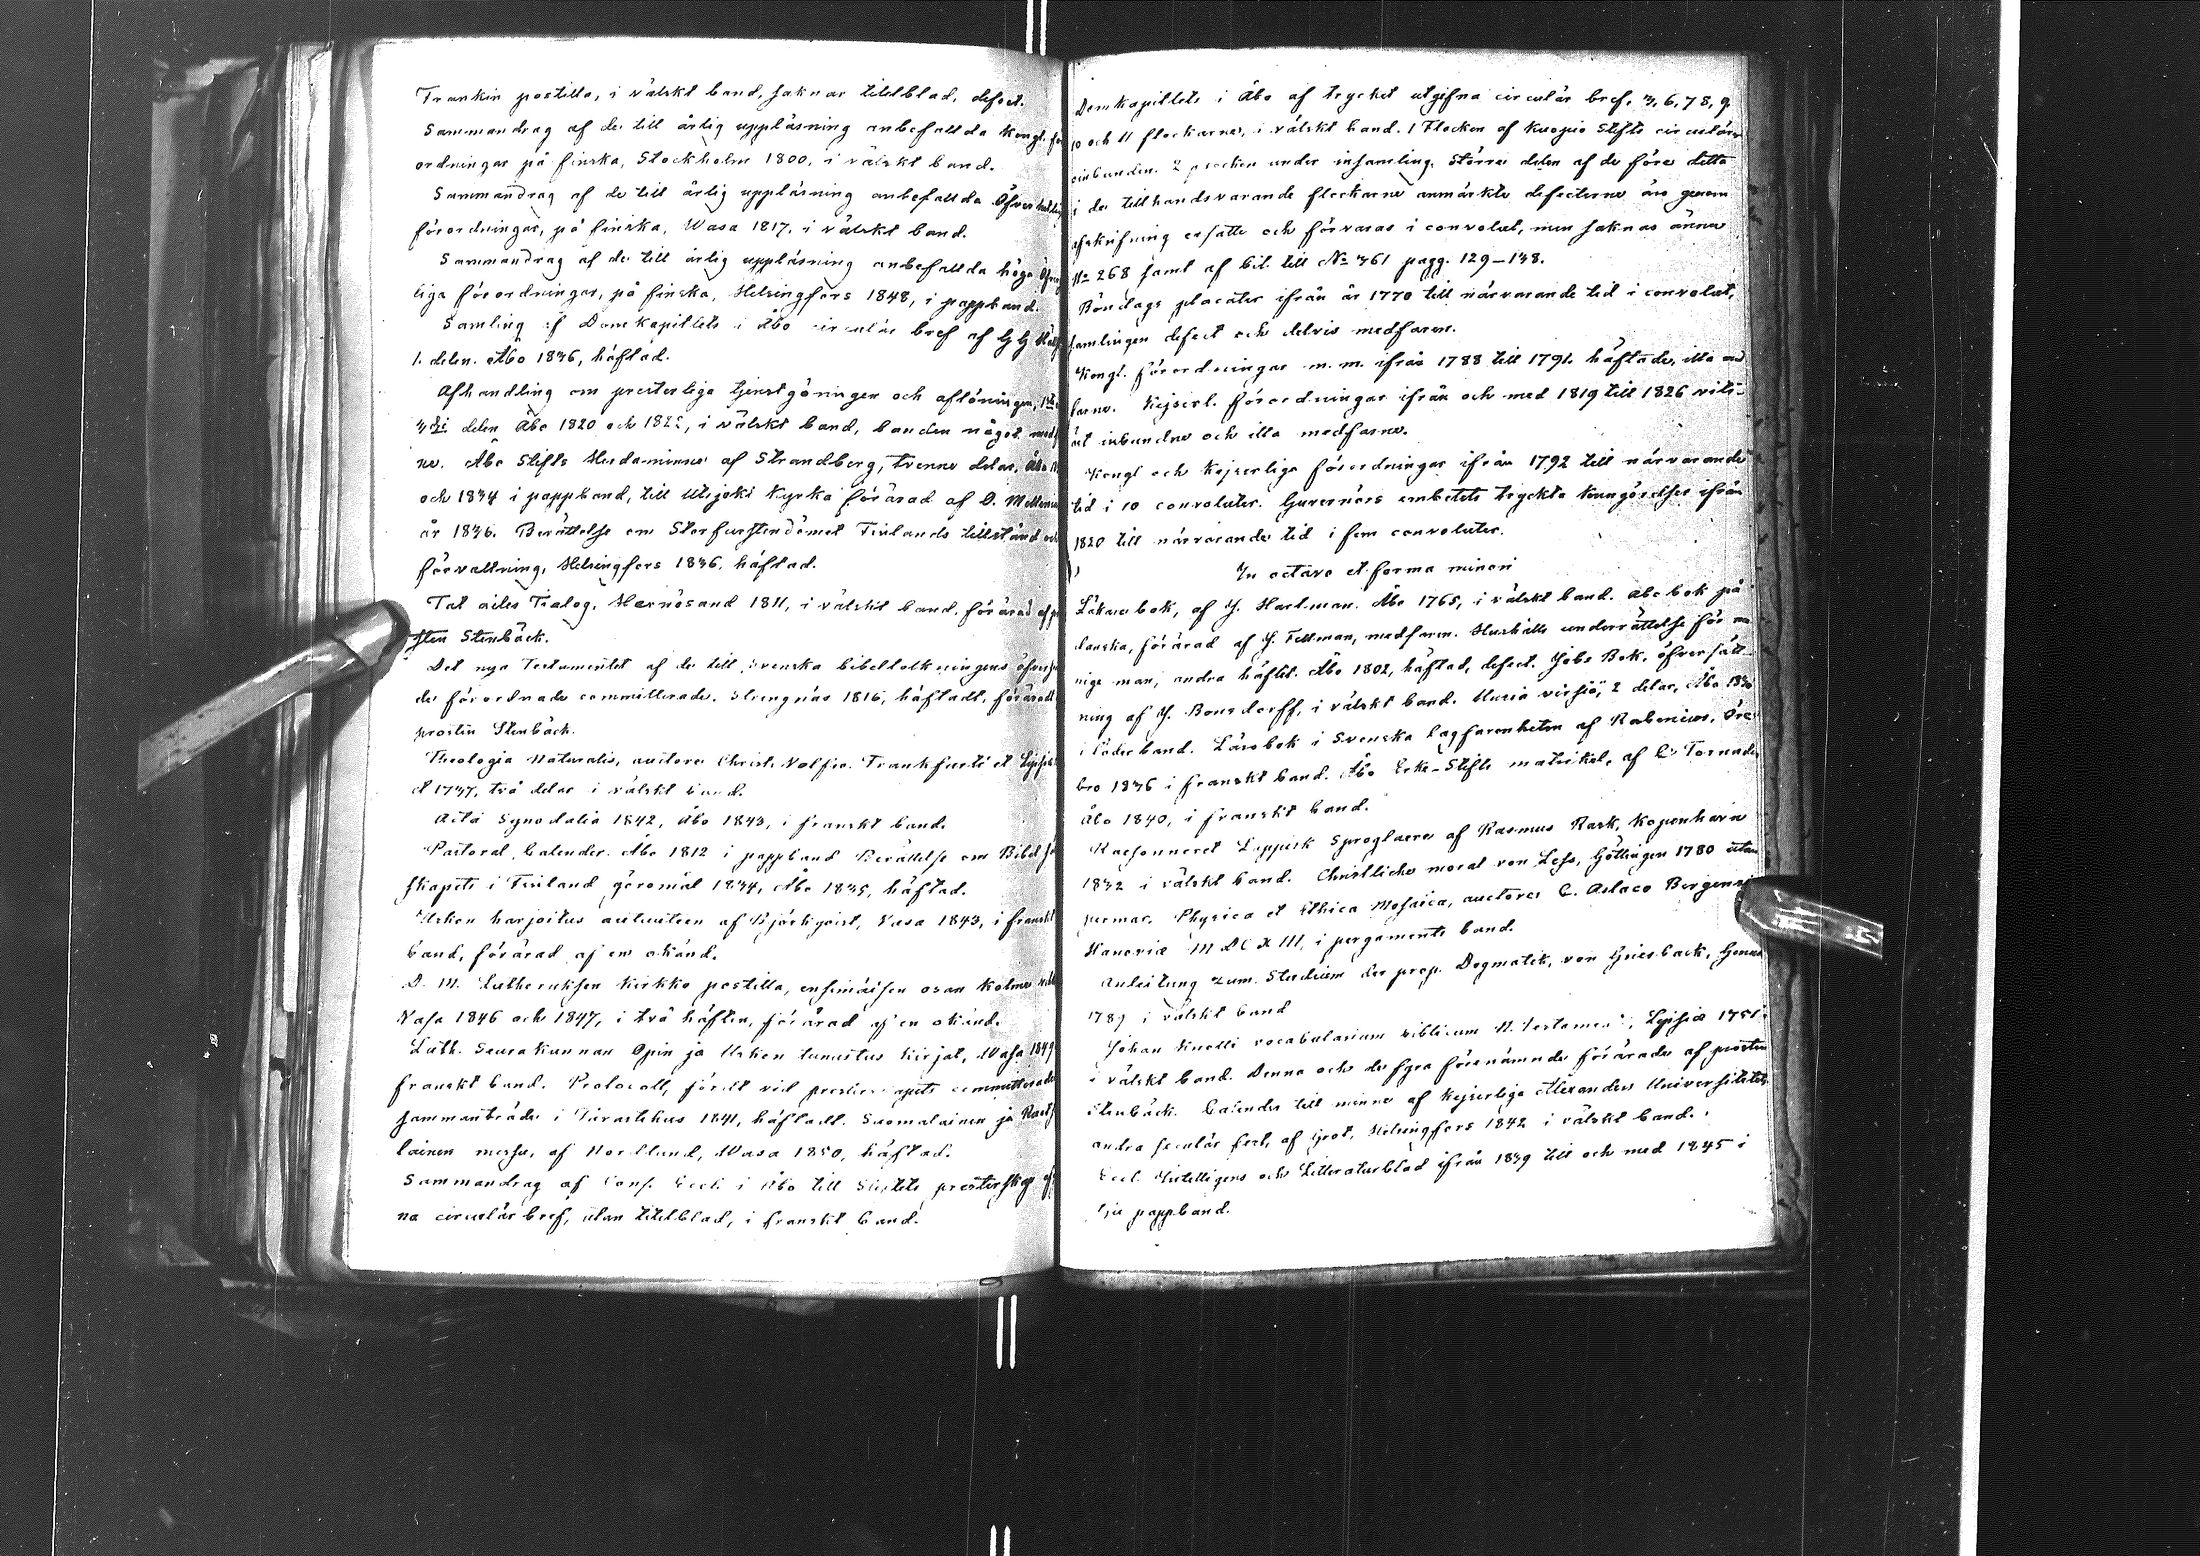 Frankin postilla, i välskt band, saknar titelblad, defect.
Sammandrag af de till årlig uppläsning anbefallda Kongl. för
ordningar på finska, Stockholm 1800, i välskt band.
Sammandrag af de till årlig uppläsning anbefallda Öfver
förordningar, på finska, Wasa 1817, i välskt band.
Sammandrag af de till årlig uppläsning anbefallda höga
liga förordningar, på finska, Helsingfors 1848, i pappband.
Samling af Domkapitlets i Åbo circulär bref af
1. delen. Åbo 1836, häftad.
Afhandling om presterliga tjenstgöringen och aflöningen,
3dje delen Åbo 1820 och 1822, i välskt band, banden något
ne. Åbo Stifts Herdaminne af Strandberg, tvenne delar, Åbo
och 1834 i pappband, till Utsjoki kyrka förärad af D.
år 1836. Berättelse om Storfurstendömet Finlands tillstånd och
förvaltning, Helsingfors 1836, häftad.
Tat ailes Tialog. Hernösand 1811, i välskt band, förärad af
sten Stenbäck.
Det nya Testamentet af de till svenska bibeltolkningens
de förordnade committerade. Strengnäs 1816, häftadt, föräradt
prosten Stenbäck.
Theologia Naturalis, auctore Christ. Volfio. Frankfurti et Lipsiæ
et 1737, två delar i välskt band.
Acta Synodalia 1842, Åbo 1843, i franskt band.
Pastoral Calender. Åbo 1812 i pappband Berättelse om Bibel
skapets i Finland göromål 1834, Åbo 1835, häftad.
Uskon harjoitus autuuteen af Björkqvist, Vasa 1843, i franskt
band, förärad af en okänd.
D. M. Lutheruksen kirkko postilla, ensimäisen osan kolme
Vasa 1846 och 1847, i två häften, förärad af en okänd.
Luth. Seurakunnan Opin ja Uskon tunnustus kirjat, Wasa 1849
franskt band. Protocoll, fördt vid presterskapets committerade
sammanträde i Tavastehus 1841, häftadt. Suomalainen ja
lainen messu, af Nordlund, Wasa 1850, häftad.
Sammandrag af Cons. Eccl. i Åbo till Stiftets presterskap
na circulär bref, utan titelblad, i franskt band.
Domkapitlets i Åbo af trycket utgifna circulär bref, 3, 6, 7 8, 9
10 och 11 flockarne, i välskt band. 1 Flocken af Kuopio Stifts circulärer
oinbunden. 2 flocken under insamling. Större delen af de före detta
i de tillhandsvarande flockarne anmärkte defecterne äro genom
afskrifning ersatte och förvaras i convolut, men saknas ännu
No 268 samt af bil. till No 361 pagg. 129-138.
Böndags placater ifrån år 1770 till närvarande tid i convolut,
samlingen defect och delvis medfaren.
Kongl. förordningar m. m. ifrån 1788 till 1791, häftade, illa med
farne. Kejserl. förordningar ifrån och med 1819 till 1826
inbundne och illa medfarne.
Kongl och Kejserliga förordningar ifrån 1792 till närvarande
tid i 10 convoluter. Guvernörs embetets tryckta kungörelser ifrån
1820 till närvarande tid i fem convoluter.
In octavo et forma minori
Läkarebok, af J. Hartman. Åbo 1765, i välskt band. Abc bok på
danska, förärad af J. Fellman, medfaren. Hushålls underrättelse för me
nige man, andra häftet. Åbo 1802, häftad, defect. Jobs Bok, öfversätt
ning af J. Bonsdorff, i välskt band. Uusia virsiä, 2 delar, Åbo 1836
i läderband. Lärobok i Svenska Lagfarenheten af Rabenius, Öre
bro 1836 i franskt band. Åbo Erke-Stifts matrikel, af C
Åbo 1840, i franskt band.
Raesonneret Lappisk Sproglaere af Rasmus Rask, Kopenhavn
1832 i välskt band. Christliche moral von Less, Göttingen 1780 utan
permar. Physica et Ethica Mosaica, auctore C. Aslaco Bergensi
Hanoviæ M DC X III, i pergaments band.
Anleitung zum Studium der prop. Dogmatik, von Griesback, Jena
1789 i välskt band
Johan Knolli vocabularium biblicum N. Testamenti, Lipsiæ 1751
i välskt band. Denna och de fyra förenämnde förärade af prosten
Stenbäck. Calender till minne af Kejserliga Alexanders Universitetets
andra secular fest, af Grot, Helsingfors 1842 i välskt band.
Eccl. Intelligens och Litteraturblad ifrån 1839 till och med 1845 i
pappband.